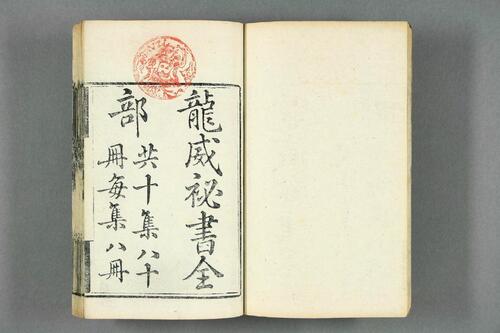 龍威祕書全
部
共十集八十
冊每集八冊